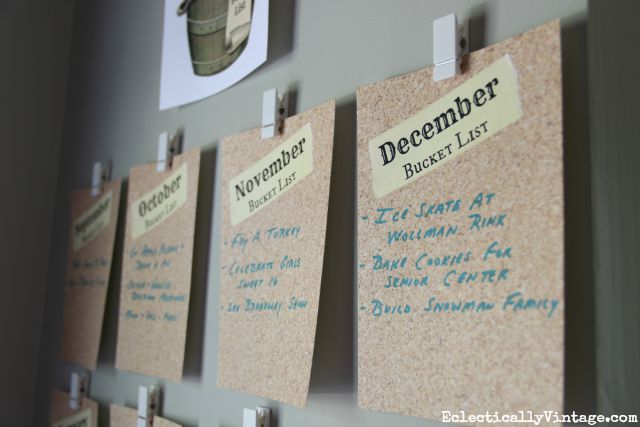 List
September
Bucket List
October
Bucket List
Go Apple Picking
November
Bucket List
- Fry A Turkey
- Celebrate Girls
Sweet 16
- See Broadway Show
December
Bucket List
- Ice Skate At
Wollman Rink
- Bake Cookies For
Senior Center
- Build Snowman Family
EclecticallyVintage.com